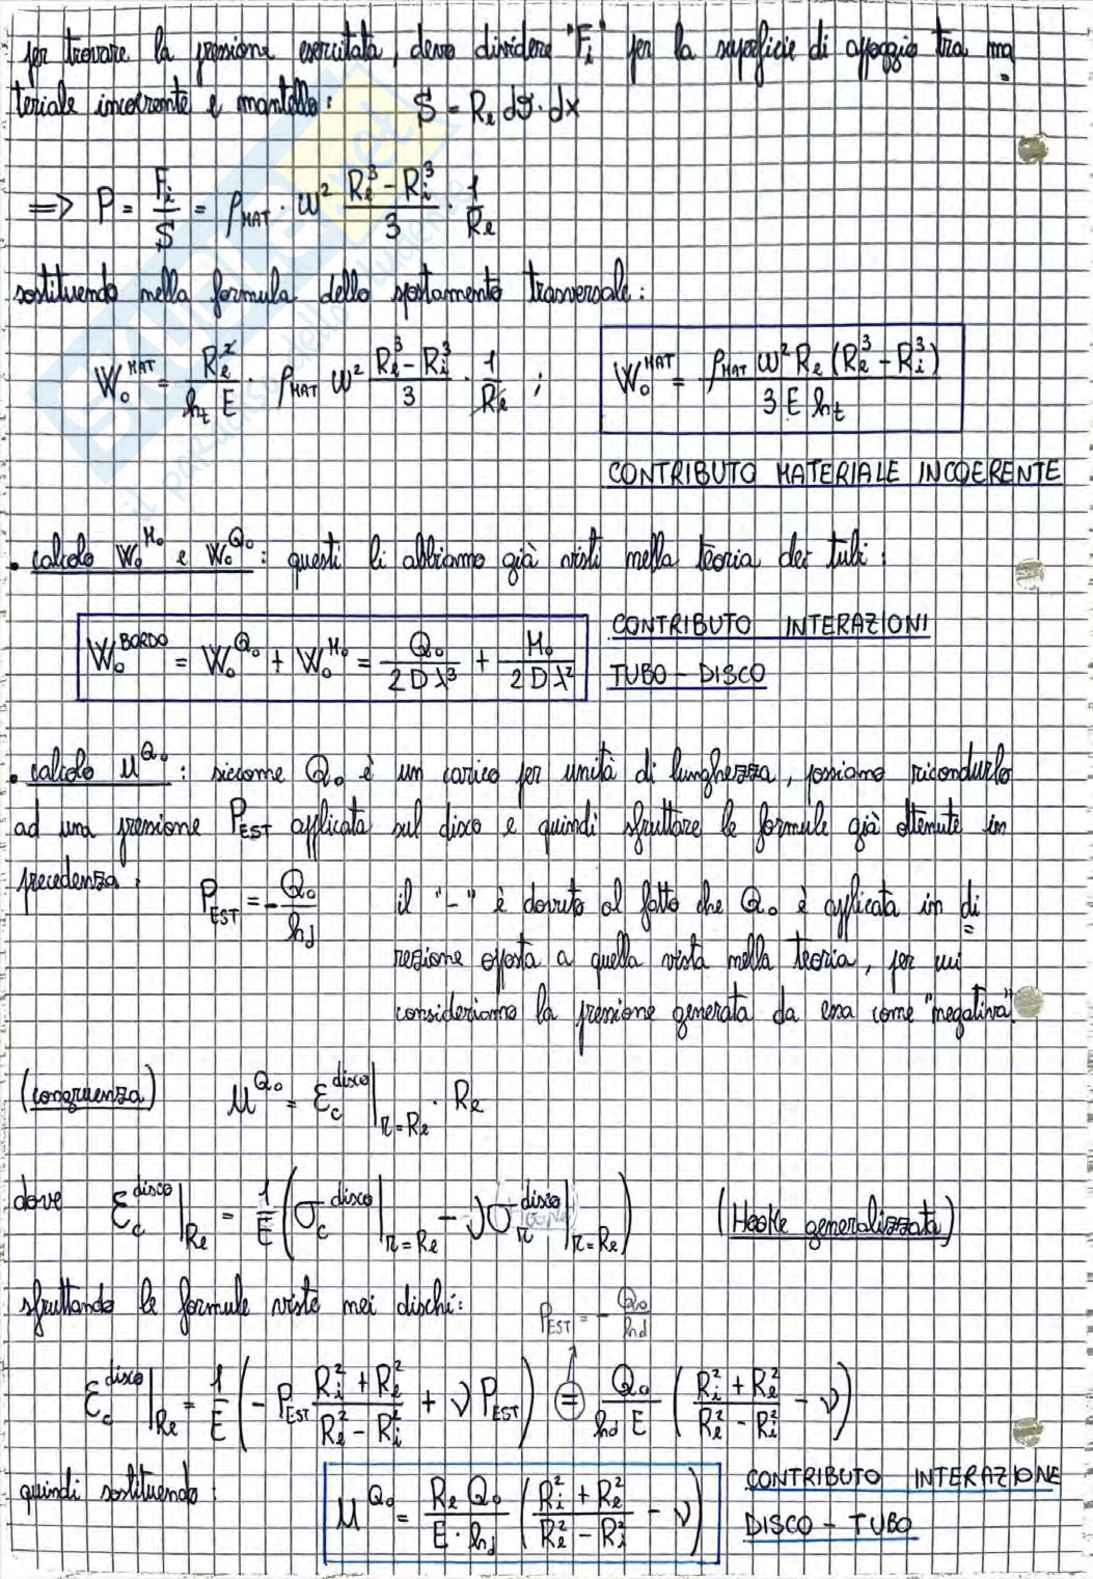 per trovare la pressione esercitata, devo dividere "Fi" per la superficie di appoggio tra ma
teriale incoerente e mantello: S = Re dϑ · dx
=> P = Fi/S = ρMAT · ω² (Re³ - Ri³)/3 · 1/Re
sostituendo nella formula dello spostamento trasversale:
W₀^MAT = Re²/(ht E) · ρMAT ω² (Re³ - Ri³)/3 · 1/Re ; W₀^MAT = ρMAT ω² Re (Re³ - Ri³)/(3 E ht)
CONTRIBUTO MATERIALE INCOERENTE
• calcolo W₀^M₀ e W₀^Q₀ : questi li abbiamo già visti nella teoria dei tubi:
W₀^BORDO = W₀^Q₀ + W₀^M₀ = Q₀/(2Dλ³) + M₀/(2Dλ²) CONTRIBUTO INTERAZIONI
TUBO - DISCO
• calcolo u^Q₀ : siccome Q₀ è un carico per unità di lunghezza, possiamo ricondurlo
ad una pressione PEST applicata sul disco e quindi sfruttare le formule già ottenute in
precedenza: PEST = - Q₀/hd il "-" è dovuto al fatto che Q₀ è applicata in di
rezione opposta a quella vista nella teoria, per cui
consideriamo la pressione generata da essa come "negativa".
(congruenza) u^Q₀ = εc^disco |r=Re · Re
dove εc^disco |Re = 1/E (σc^disco |r=Re - νσr^disco |r=Re) (Hooke generalizzata)
sfruttando le formule viste nei dischi: PEST = - Q₀/hd
εc^disco |Re = 1/E (- PEST (Ri² + Re²)/(Re² - Ri²) + ν PEST) = Q₀/(hd E) ((Ri² + Re²)/(Re² - Ri²) - ν)
quindi sostituendo: u^Q₀ = (Re Q₀)/(E · hd) ((Ri² + Re²)/(Re² - Ri²) - ν) CONTRIBUTO INTERAZIONE
DISCO - TUBO